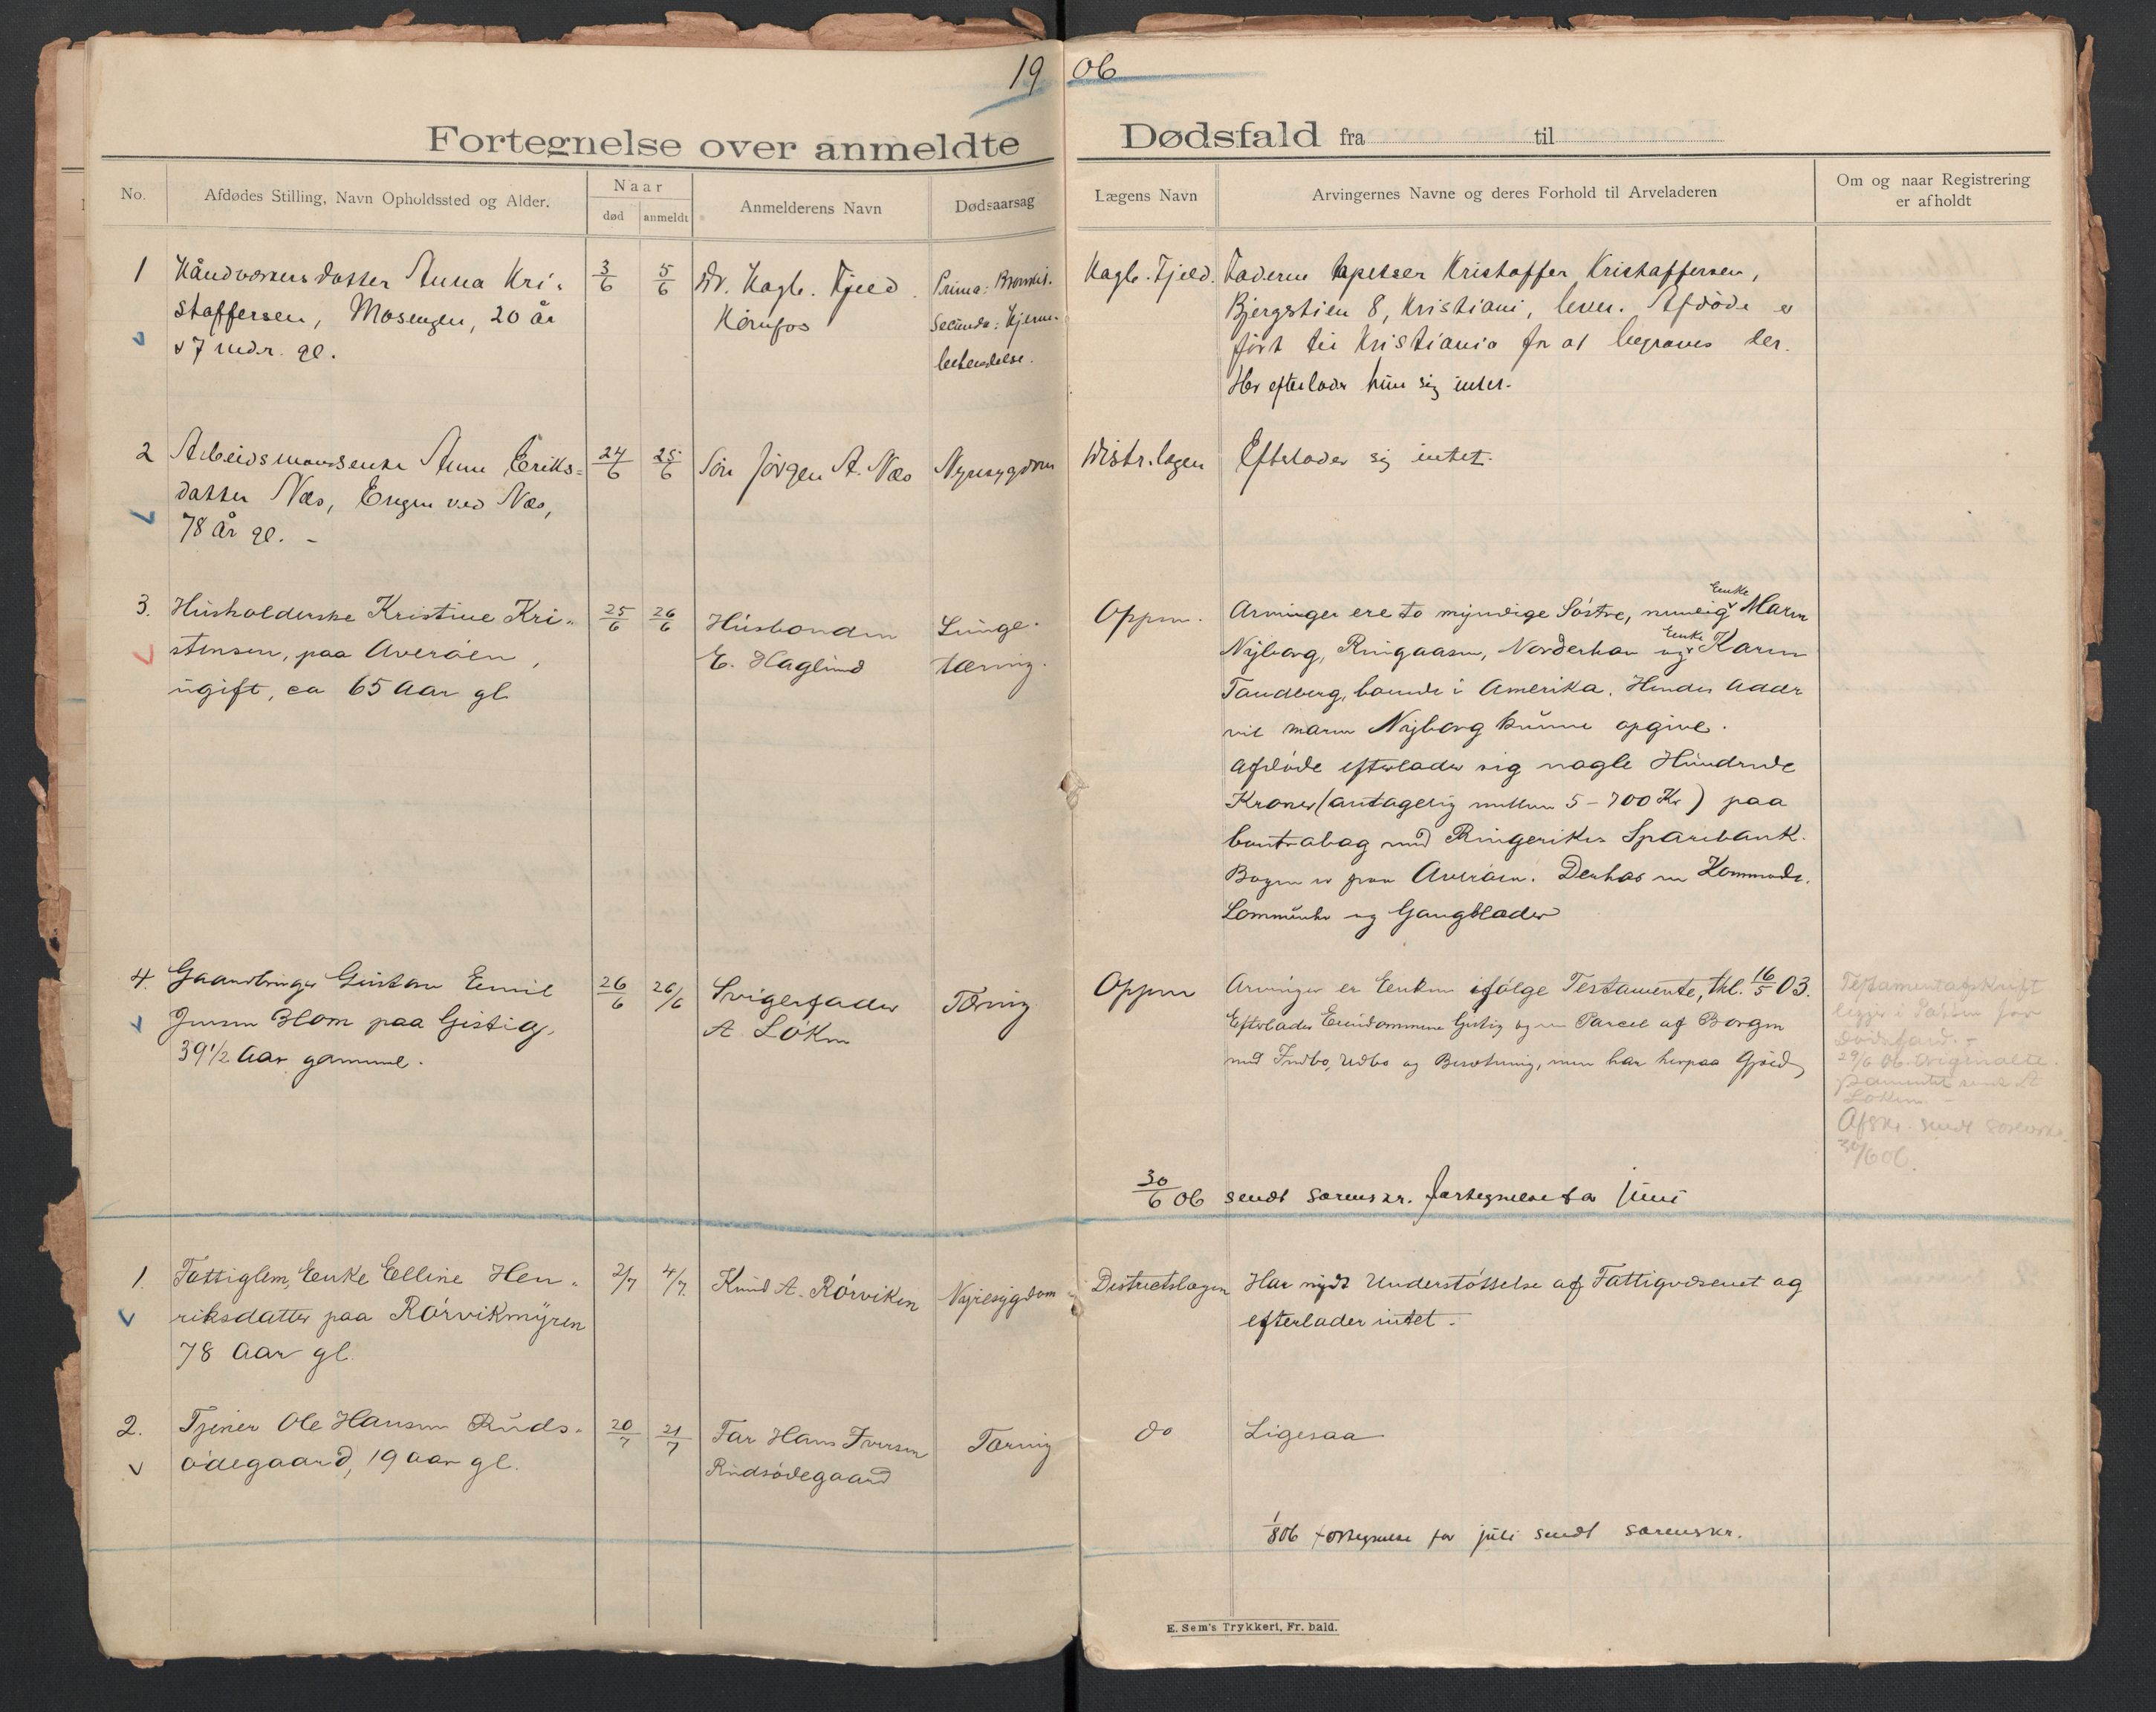 19 06
Fortegnelse over anmeldte Dødsfald fra til
No.
Afdødes Stilling, Navn Opholdssted og Alder.
Naar
død
anmeldt
Anmelderens Navn
Dødsaarsag
Lægens Navn
Arvingernes Navne og deres Forhold til Arveladeren
Om og naar Registrering
er afholdt
1
Håndværkersdatter Anna Kri-
stoffersen, Mosengen, 20 år
& 7 mdr. gl.
3/6
5/6
Dr. Kagb. Fjeld
Hønefos
Prima: Bronkit.
Secunda: Hjerne-
betendelse.
Kagb. Fjeld.
Faderen tapetser Kristoffer Kristoffersen,
Bjergstien 8, Kristiani, lever. Afdøde er
ført til Kristiania for at begraves der.
Her efterlader hun sig intet.
2
Arbeidsmandsenke Anne Eriks-
datter Næs, Engen ved Næs,
78 år gl. -
24/6
25/6
Søn Jørgen A. Næs
Nyresygdom
Distr.lægen
Efterlader sig intet.
3.
Husholderske Kristine Kri-
stensen, paa Averøen,
ugift, ca 65 Aar gl
25/6
26/6
Husbonden
E. Haglund
Lunge-
tæring.
Oppm.
Enke
Arvinger ere to myndige Søstre, nemlig Maren
Nyborg, Ringaasen, Norderhov og Enke Karen
Tandberg, boende i Amerika. Hendes Addr
vil Maren Nyborg kunne opgive.
Afdøde efterlader sig nogle Hundrede
Kroner (antagelig mellem 5-700 Kr) paa
bankabog med Ringerikes Sparebank.
Bogen er paa Averøen. Derhos en Kommode,
Lommeuhr og Gangklæder
4.
Gaardbruger Gustav Emil
Jensen Blom paa Gistig,
39 1/2 Aar gammel.
26/6
26/6
Svigerfader
A. Løken
Tæring
Oppm
Arvinger er Enken ifølge Testamente, tkl. 16/5 03.
Efterlader Eiendommene Gistig og en Parcel af Borgen
med Indbo, Udbo og Besetning, men har herpaa Gjæld
Testamentafskrift
ligger i Pakken for
dødsfald. -
29/6 06 originalte-
stamentet sendt A
Løken. -
Afskr. sendt sorenskr.
30/6 06.
30/6 06 sendt sorenskr. fortegnelse for juni
1.
Fattiglem, Enke Elline Hen-
riksdatter paa Rørvikmyren
78 Aar gl.
2/7
4/7
Knud A. Rørviken
Nyresygdom
Districtslægen
Har nydt Understøttelse af Fattigvæsenet og
efterlader intet.
2.
Tjener Ole Hansen Ruds-
ødegaard, 19 aar gl.
20/7
21/7
Far Hans Iversen
Rudsødegaard
Tæring
do
Ligesaa
1/8 06 fortegnelse for juli sendt sorenskr.
E. Sem's Trykkeri, Fr. hald.